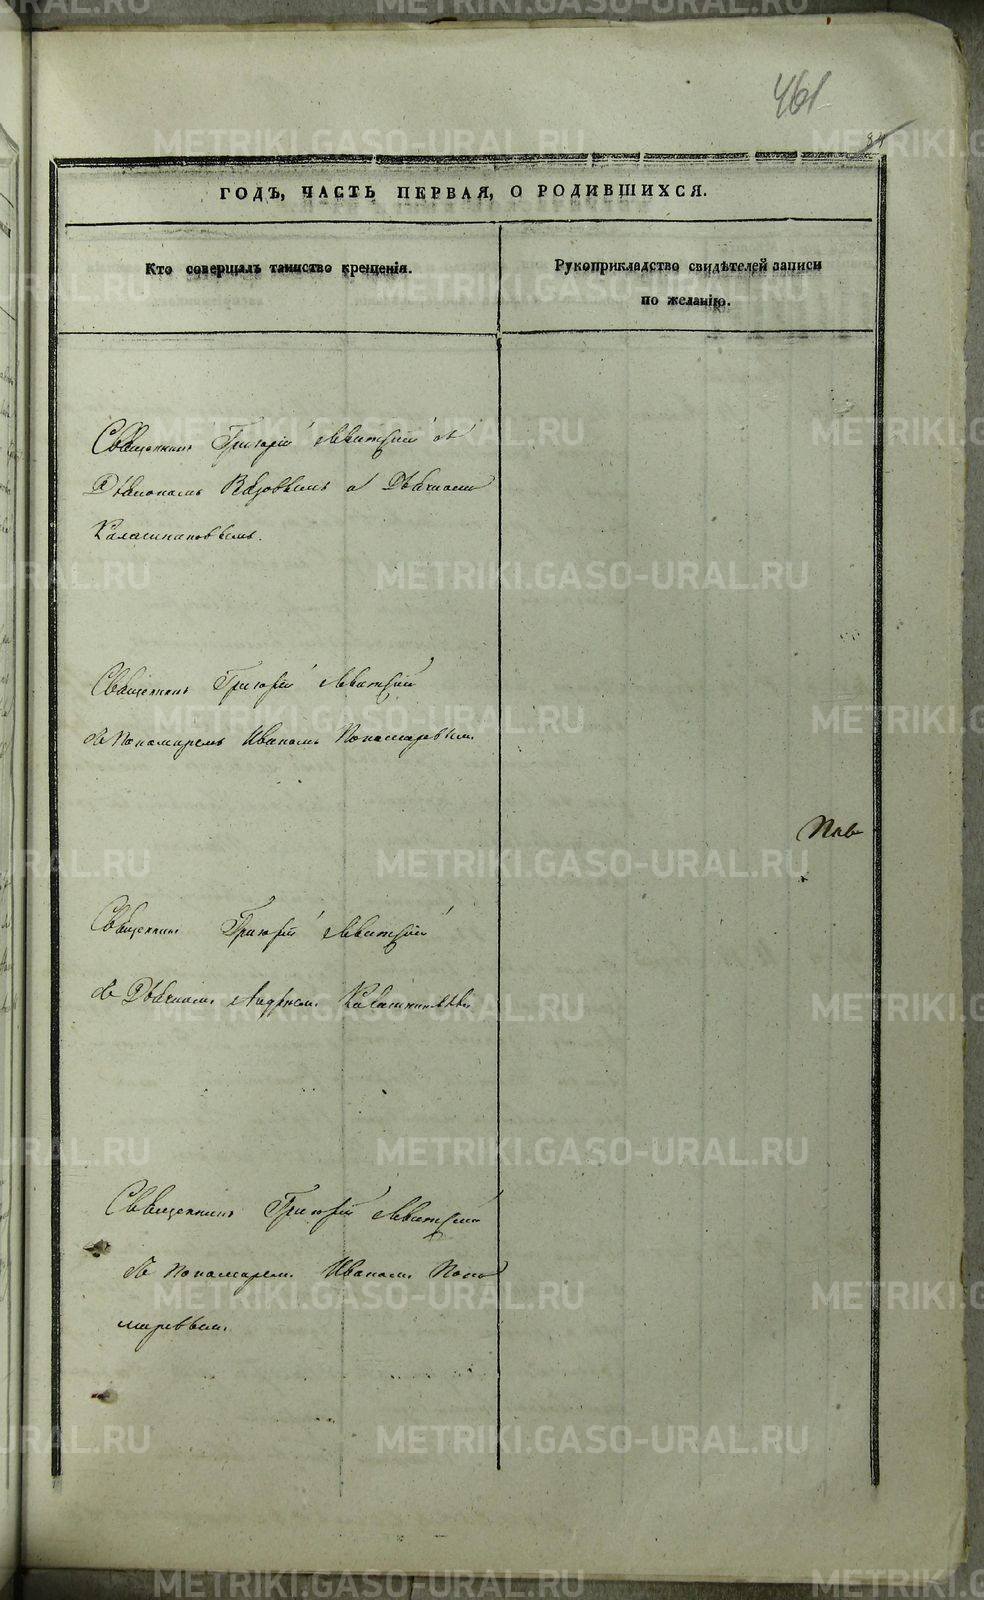 461
34
ГОДЪ, ЧАСТЬ ПЕРВАЯ, О РОДИВШИХСЯ.
Кто совершалъ таинство крещенія.
Рукоприкладство свидѣтелей записи
по желанію.
Священникъ Григорій Левитскій съ
Діакономъ Вязовымъ и Дьячкомъ
Калашниковымъ.
Священникъ Григорій Левитскій
съ Пономаремъ Иваномъ Пономаревымъ.
Священникъ Григорій Левитскій
съ Дьячкомъ Андреемъ Калашниковымъ
Священникъ Григорій Левитскій
съ Пономаремъ Иваномъ Поно
маревымъ.
METRIKI.GASO-URAL.RU